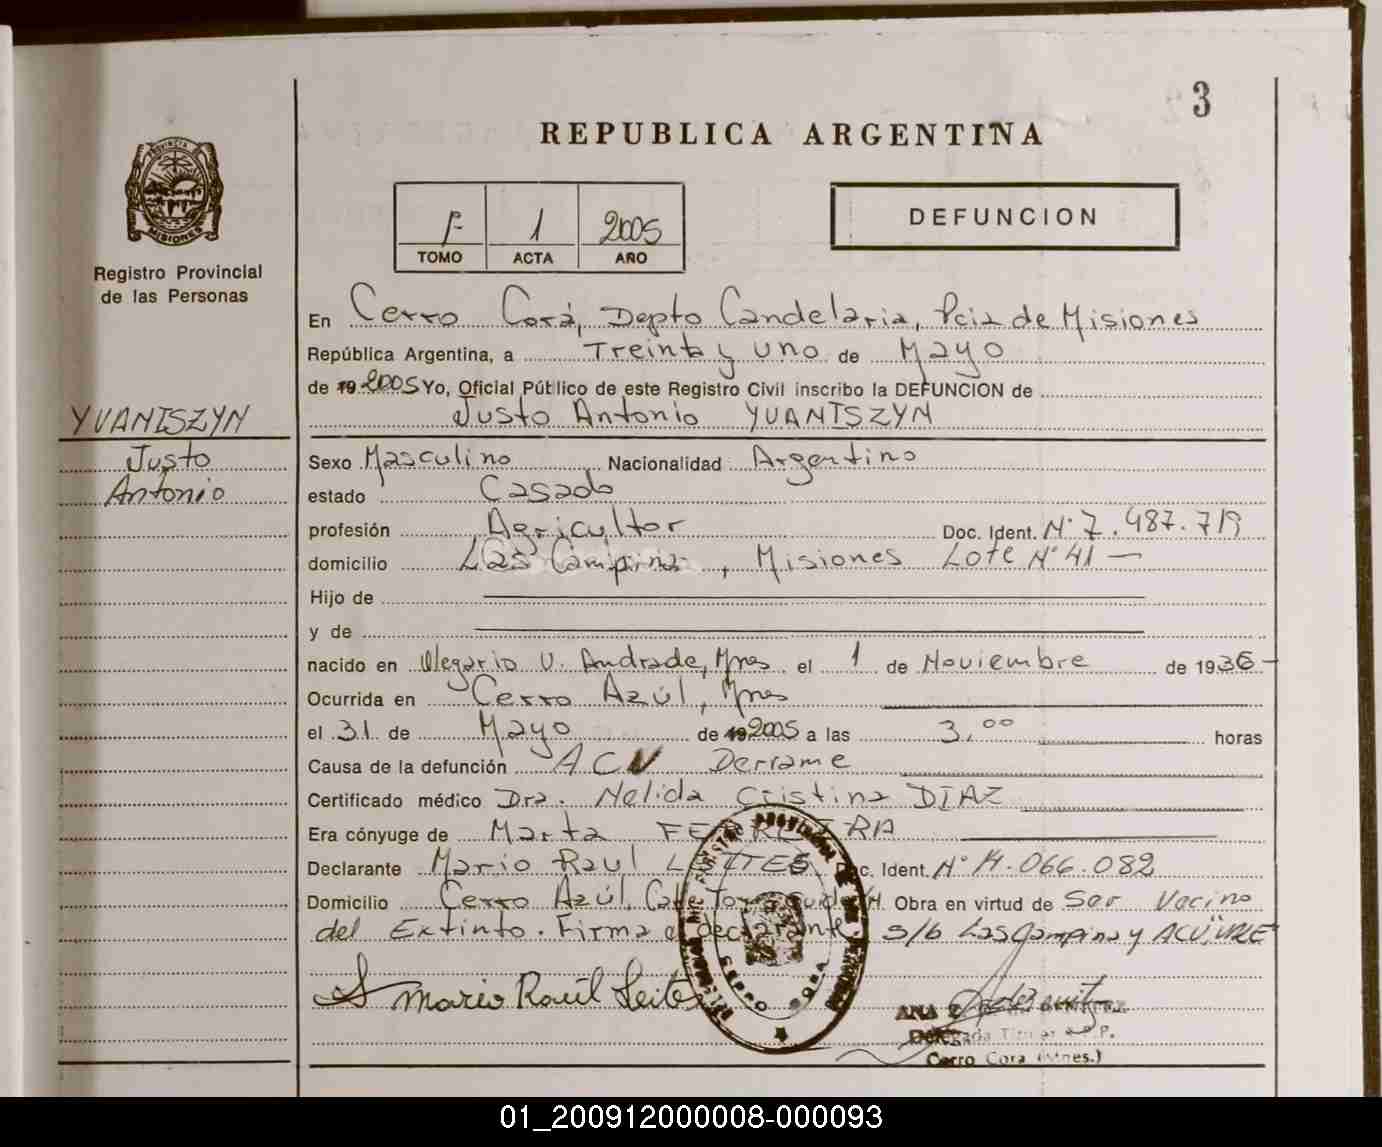 3
REPUBLICA ARGENTINA
PROVINCIA DE
MISIONES
Registro Provincial
de las Personas
1º 1 2005
TOMO ACTA AÑO
DEFUNCION
En Cerro Corá, Depto Candelaria, Pcia de Misiones
República Argentina, a Treinta y uno de Mayo
de 19 2005 Yo, Oficial Público de este Registro Civil inscribo la DEFUNCION de
Justo Antonio YUANISZYN
YUANISZYN
Justo
Antonio
Sexo Masculino Nacionalidad Argentino
estado Casado
profesión Agricultor Doc. Ident. Nº 7.487.719
domicilio Las Campinas, Misiones Lote Nº 41 —
Hijo de
y de
nacido en Olegario V. Andrade, Mnes el 1 de Noviembre de 1936 -
Ocurrida en Cerro Azúl, Mnes
el 31 de Mayo de 19 2005 a las 3,00 horas
Causa de la defunción ACV Derrame
Certificado médico Dra. Nelida Cristina DIAZ
Era cónyuge de Marta FERREIRA
Declarante Mario Raul LEITES Doc. Ident. Nº 14.066.082
Domicilio Cerro Azúl, Obra en virtud de Ser Vecino
del Extinto. Firma declarante s/b Las Campinas y ACV, VALE
Mario Raúl Leites
ANA
Delegada Titular R.P.P.
Cerro Cora (Mnes.)
01_200912000008-000093